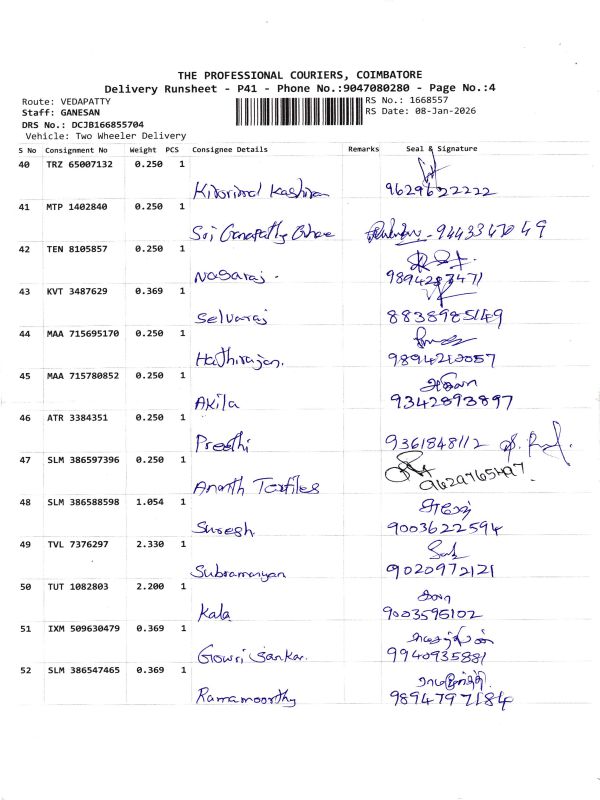 THE PROFESSIONAL COURIERS, COIMBATORE
Delivery Runsheet - P41 - Phone No.:9047080280 - Page No.:4
Route: VEDAPATTY
RS No.: 1668557
Staff: GANESAN
RS Date: 08-Jan-2026
DRS No.: DCJB166855704
Vehicle: Two Wheeler Delivery
S No Consignment No Weight PCS Consignee Details Remarks Seal & Signature
40 TRZ 65007132 0.250 1
9629622222
41 MTP 1402840 0.250 1
Sri Ganapathy
42 TEN 8105857 0.250 1
Nagaraj. 9894287471
43 KVT 3487629 0.369 1
Selvaraj 8838985149
44 MAA 715695170 0.250 1
Hathirajan. 9894210057
45 MAA 715780852 0.250 1
அகிலா
Akila 9342893897
46 ATR 3384351 0.250 1
Preethi 9361848112
47 SLM 386597396 0.250 1
Ananth Textiles 9629765497
48 SLM 386588598 1.054 1
சுரேஷ்
Suresh 9003622594
49 TVL 7376297 2.330 1
Subramaniyan 9020972121
50 TUT 1082803 2.200 1
கலா
Kala 9003595102
51 IXM 509630479 0.369 1
Gowri Sankar. 9940935881
52 SLM 386547465 0.369 1
ராமமூர்த்தி
Ramamoorthy 9894797184